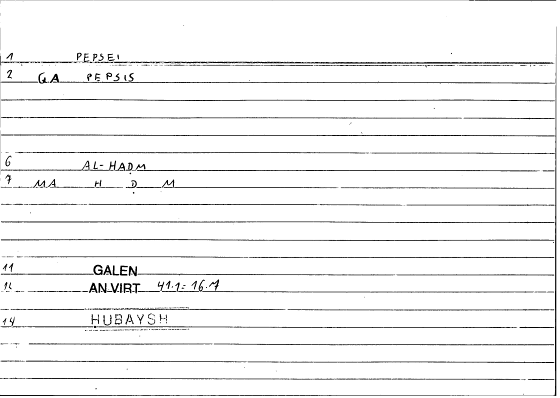 1 PEPSEI
2 GA PEPSIS
6 AL-HAḌM
7 MA H Ḍ M
11 GALEN
12 AN VIRT 41.1: 16.7
14 ḤUBAYSH